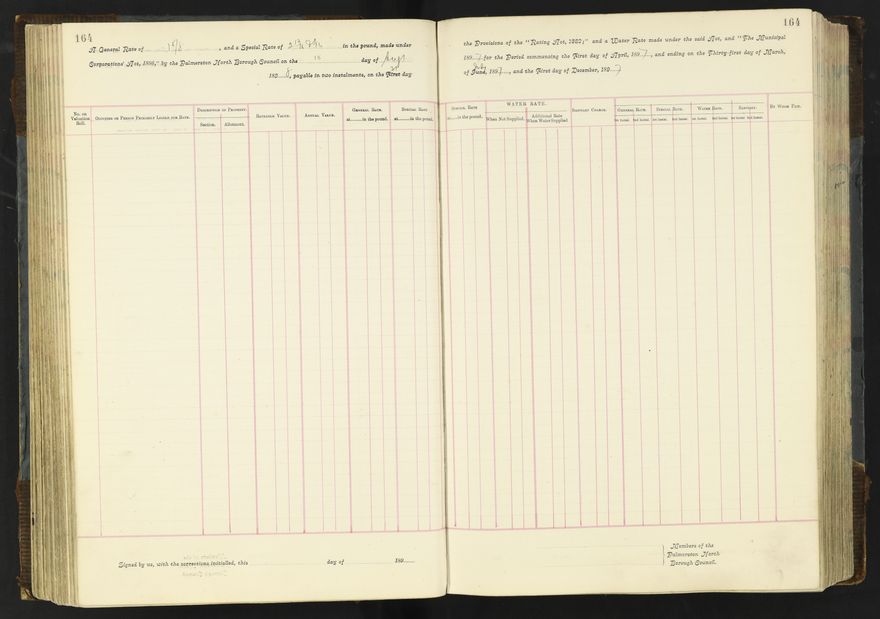 164
A General Rate of 1/3, and a Special Rate of in the pound, made under
Corporations' Act, 1886," by the Palmerston North Borough Council on the 18 day of Augt
189 , payable in two instalments, on the First day
No. on Valuation Roll.
Occupier or Person Primarily Liable for Rate.
Description of Property.
Section.
Allotment.
Rateable Value.
Annual Value.
General Rate
at in the pound.
Special Rate
at in the pound.
Signed by us, with the corrections initialled, this day of 189
164
the Provisions of the "Rating Act, 1882;" and a Water Rate made under the said Act, and "The Municipal
1897 for the Period commencing the First day of April, 1897, and ending on the Thirty-first day of March,
July
of June, 1897, and the First day of December, 1897
Special Rate
at in the pound.
WATER RATE.
When Not Supplied.
Additional Rate When Water Supplied
Sanitary Charge.
General Rate.
1st Instal. 2nd Instal.
Special Rate.
1st Instal. 2nd Instal.
Water Rate.
1st Instal. 2nd Instal.
Sanitary.
1st Instal. 2nd Instal.
By Whom Paid.
Members of the
Palmerston North
Borough Council.